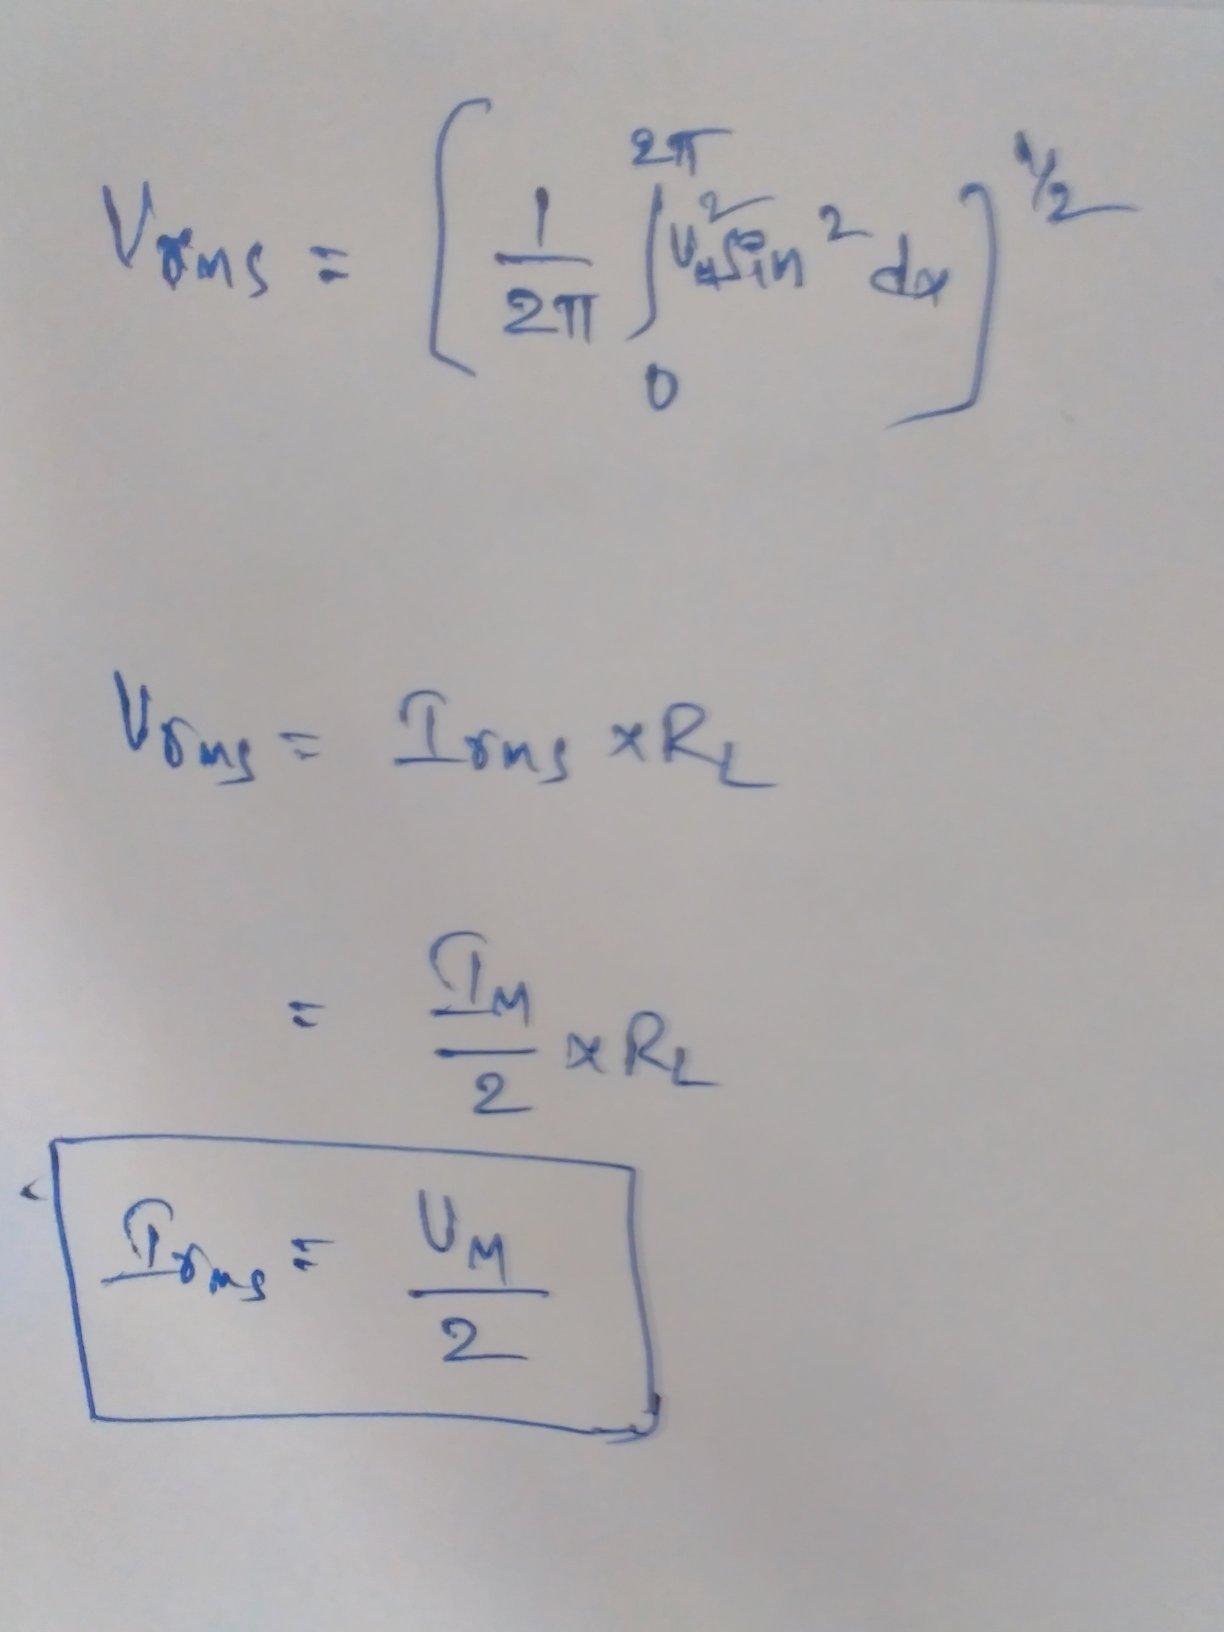 Vrms = [ 1/2π ∫₀^2π V_M² Sin² dα ]^1/2
Vrms = Irms × R_L
= I_M/2 × R_L
Irms = V_M/2